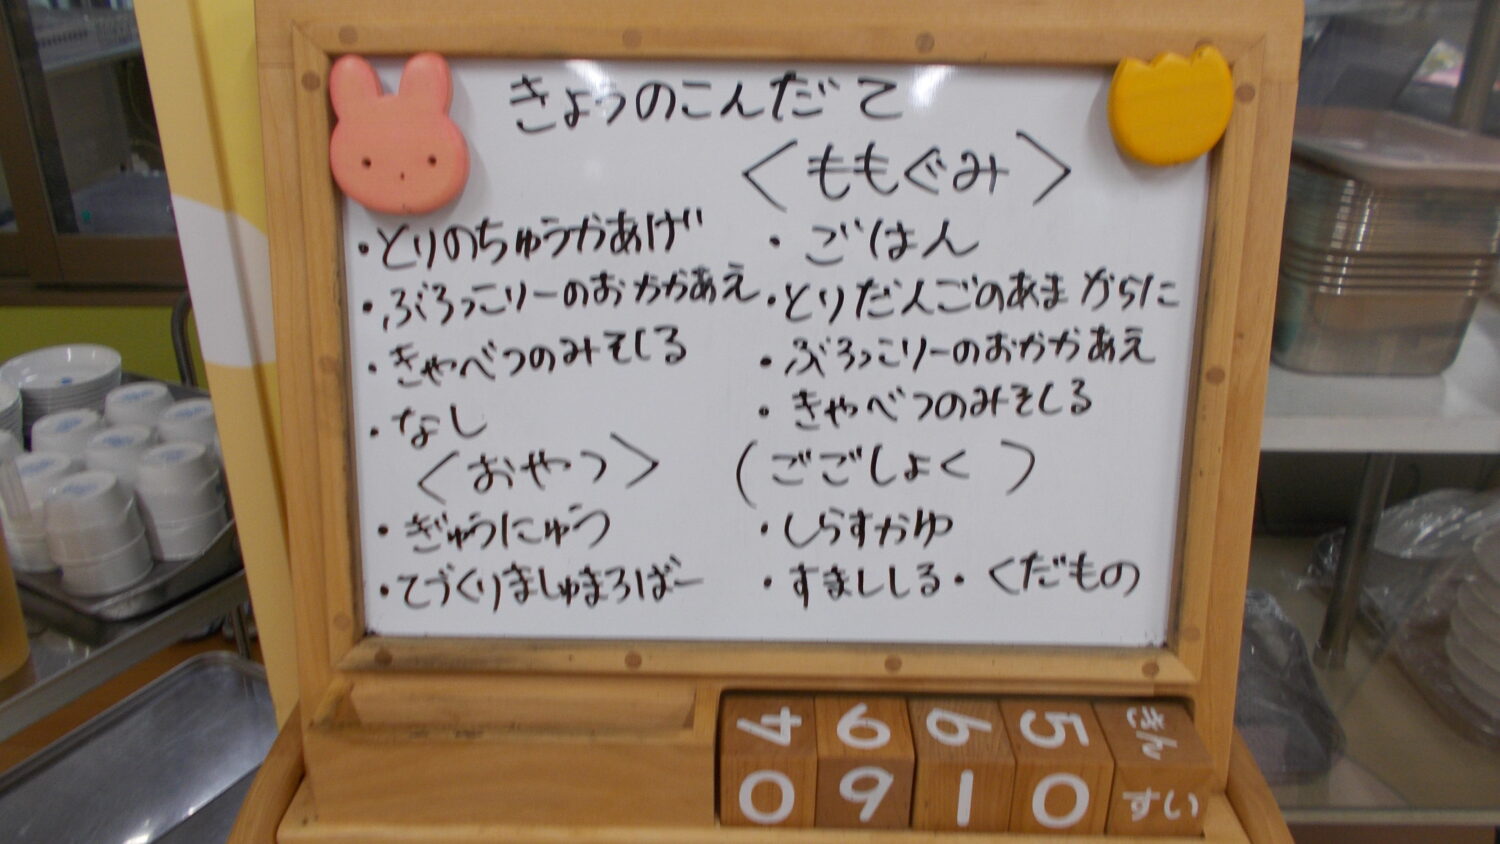 きょうのこんだて
・とりのちゅうかあげ
・ぶろっこりーのおかかあえ
・きゃべつのみそしる
・なし
〈おやつ〉
・ぎゅうにゅう
・てづくりましゅまろばー
〈ももぐみ〉
・ごはん
・とりだんごのあまからに
・ぶろっこりーのおかかあえ
・きゃべつのみそしる
(ごごしょく)
・しらすかゆ
・すまししる・くだもの
4 6 6 5 きん
0 9 1 0 すい